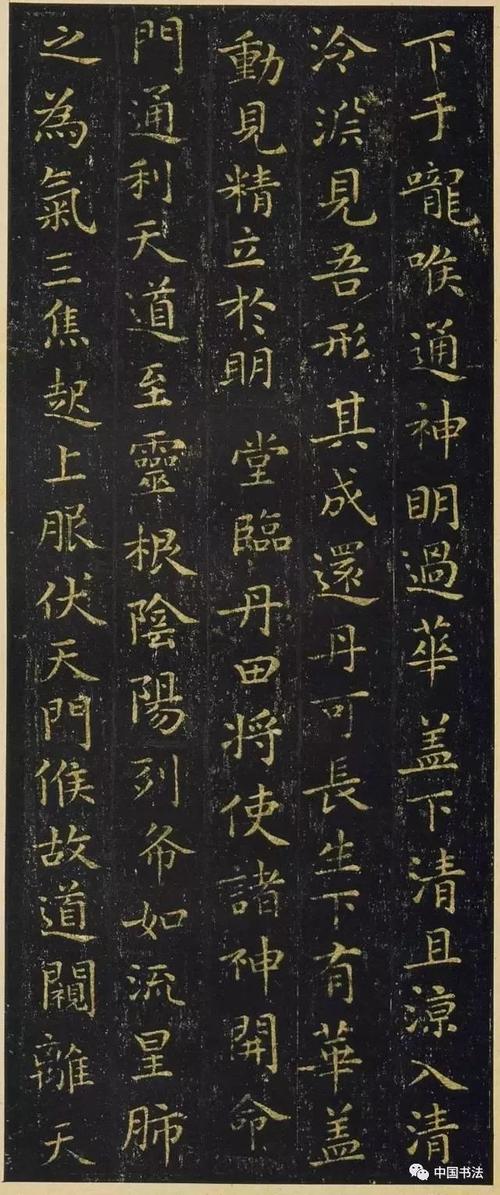 下于嚨喉通神明過華盖下清且涼入清
泠淵見吾形其成還丹可長生下有華盖
動見精立於明堂臨丹田將使諸神開命
門通利天道至靈根陰陽列布如流星肺
之為氣三焦起上服伏天門候故道闚離天
中国书法